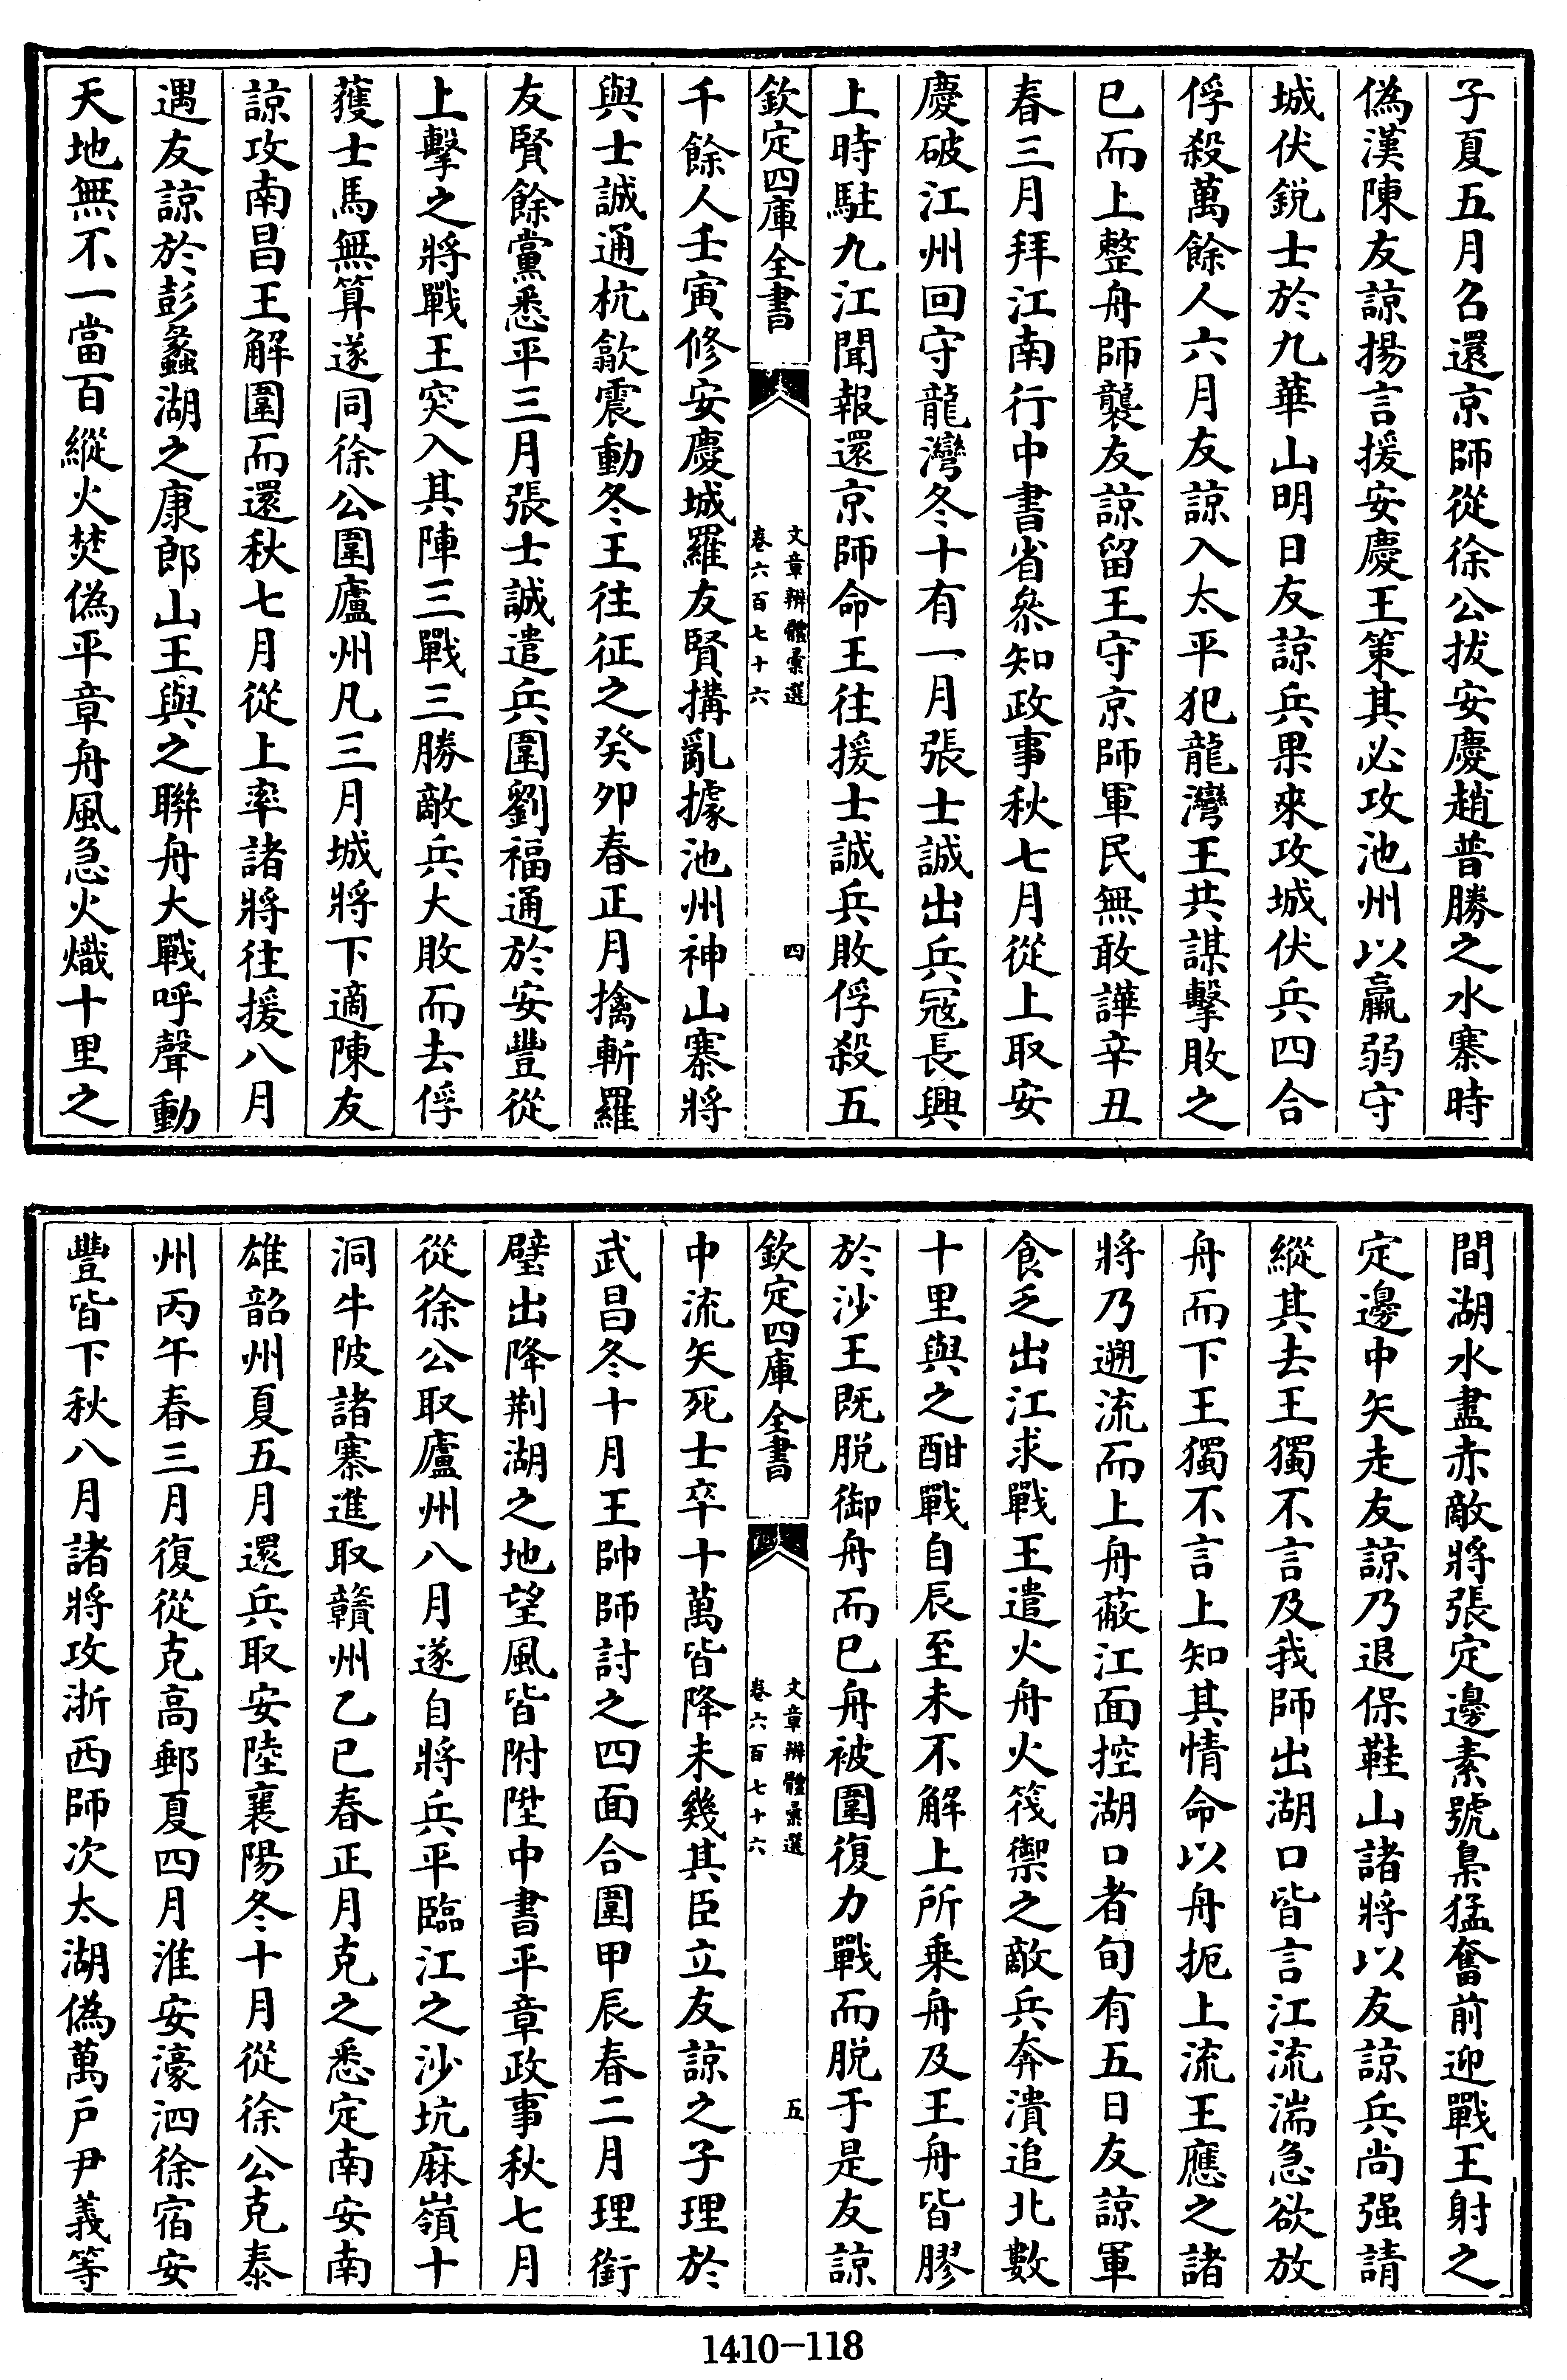 子夏五月召還京師從徐公拔安慶趙普勝之水寨時
偽漢陳友諒揚言援安慶王策其必攻池州以羸弱守
城伏鋭士於九華山明日友諒兵果來攻城伏兵四合
俘殺萬餘人六月友諒入太平犯龍灣王共謀擊敗之
已而上整舟師襲友諒留王守京師軍民無敢譁辛丑
春三月拜江南行中書省叅知政事秋七月從上取安
慶破江州回守龍灣冬十有一月張士誠出兵冦長興
上時駐九江聞報還京師命王往援士誠兵敗俘殺五
欽定四庫全書
文章辨體彙選
卷六百七十六
四
千餘人壬寅修安慶城羅友賢搆亂據池州神山寨將
與士誠通杭歙震動冬王往征之癸卯春正月擒斬羅
友賢餘黨悉平三月張士誠遣兵圍劉福通於安豐從
上擊之將戰王突入其陣三戰三勝敵兵大敗而去俘
獲士馬無算遂同徐公圍廬州凡三月城將下適陳友
諒攻南昌王解圍而還秋七月從上率諸將往援八月
遇友諒於彭蠡湖之康郎山王與之聯舟大戰呼聲動
天地無不一當百縱火焚偽平章舟風急火熾十里之
間湖水盡赤敵將張定邊素號梟猛奮前迎戰王射之
定邊中矢走友諒乃退保鞋山諸將以友諒兵尚强請
縱其去王獨不言及我師出湖口皆言江流湍急欲放
舟而下王獨不言上知其情命以舟扼上流王應之諸
將乃遡流而上舟蔽江面控湖口者旬有五日友諒軍
食乏出江求戰王遣火舟火筏禦之敵兵奔潰追北數
十里與之酣戰自辰至未不解上所乗舟及王舟皆膠
於沙王既脱御舟而已舟被圍復力戰而脱于是友諒
欽定四庫全書
文章辨體彙選
卷六百七十六
五
中流矢死士卒十萬皆降未幾其臣立友諒之子理於
武昌冬十月王帥師討之四面合圍甲辰春二月理銜
璧出降荆湖之地望風皆附陞中書平章政事秋七月
從徐公取廬州八月遂自將兵平臨江之沙坑麻嶺十
洞牛陂諸寨進取贛州乙巳春正月克之悉定南安南
雄韶州夏五月還兵取安陸襄陽冬十月從徐公克泰
州丙午春三月復從克高郵夏四月淮安濠泗徐宿安
豐皆下秋八月諸將攻浙西師次太湖偽萬户尹義等
1410-118